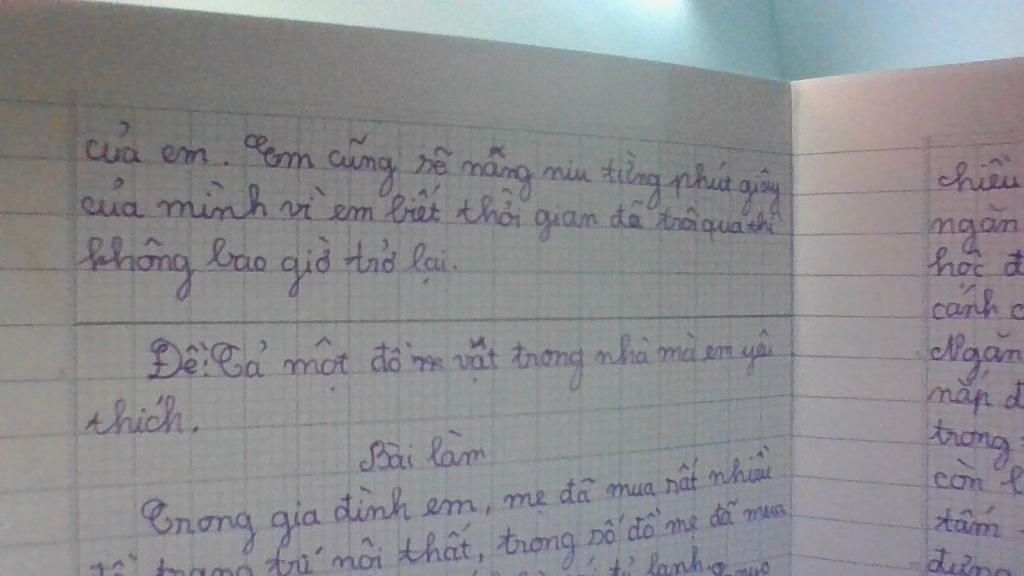 của em. Em cũng sẽ nâng niu từng phút giây
của mình vì em biết thời gian đã trôi qua thì
không bao giờ trở lại.
Đề: Tả một đồ vật trong nhà mà em yêu
thích.
Bài làm
Trong gia đình em, mẹ đã mua rất nhiều
trang trí nôi thất, trong số đồ mẹ đã mua
tủ lạnh
chiều
ngăn
hốc
cánh
Ngăn
nắp
trong
còn
tấm
đựng